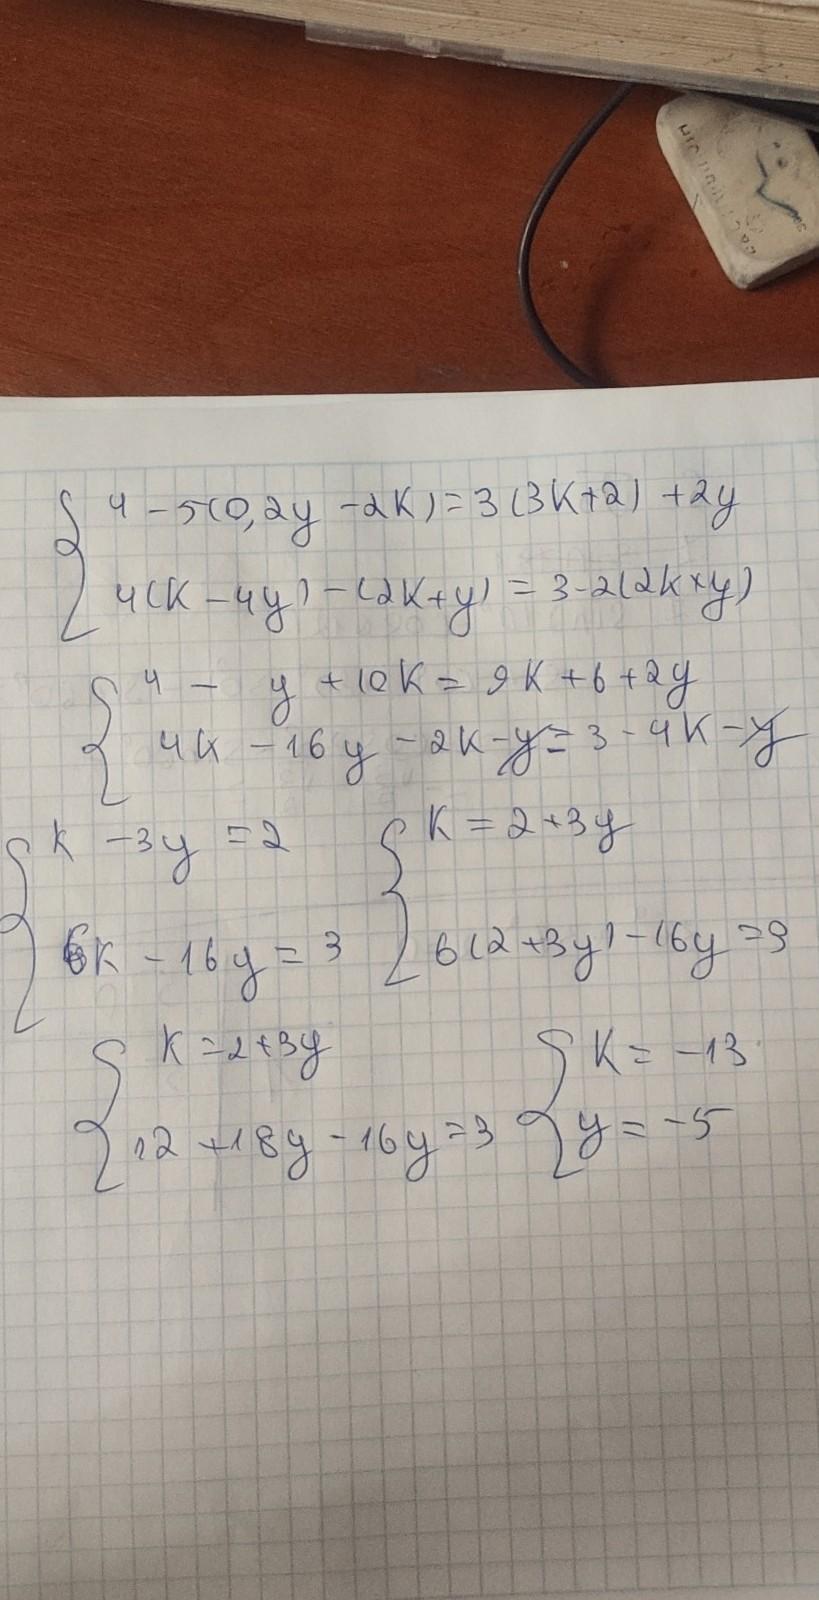 4 - 5(0,2y - 2k) = 3(3k+2) + 2y
4(k - 4y) - (2k+y) = 3-2(2k+y)
4 - y + 10k = 9k + 6 + 2y
4k - 16y - 2k - y = 3 - 4k - y
k - 3y = 2
k = 2+3y
6k - 16y = 3
6(2+3y) - 16y = 3
k = 2+3y
k = -13
12 + 18y - 16y = 3
y = -5